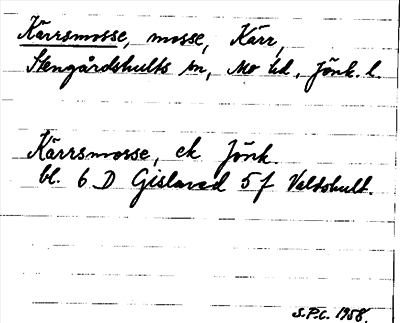 Kärrsmosse, mosse, Kärr,
Stengårdshults sn, Mo hd, Jönk. l.
Kärrsmosse, ek Jönk.
bl. 6 D Gislaved 5 f Valdshult.
S.P.C. 1958.